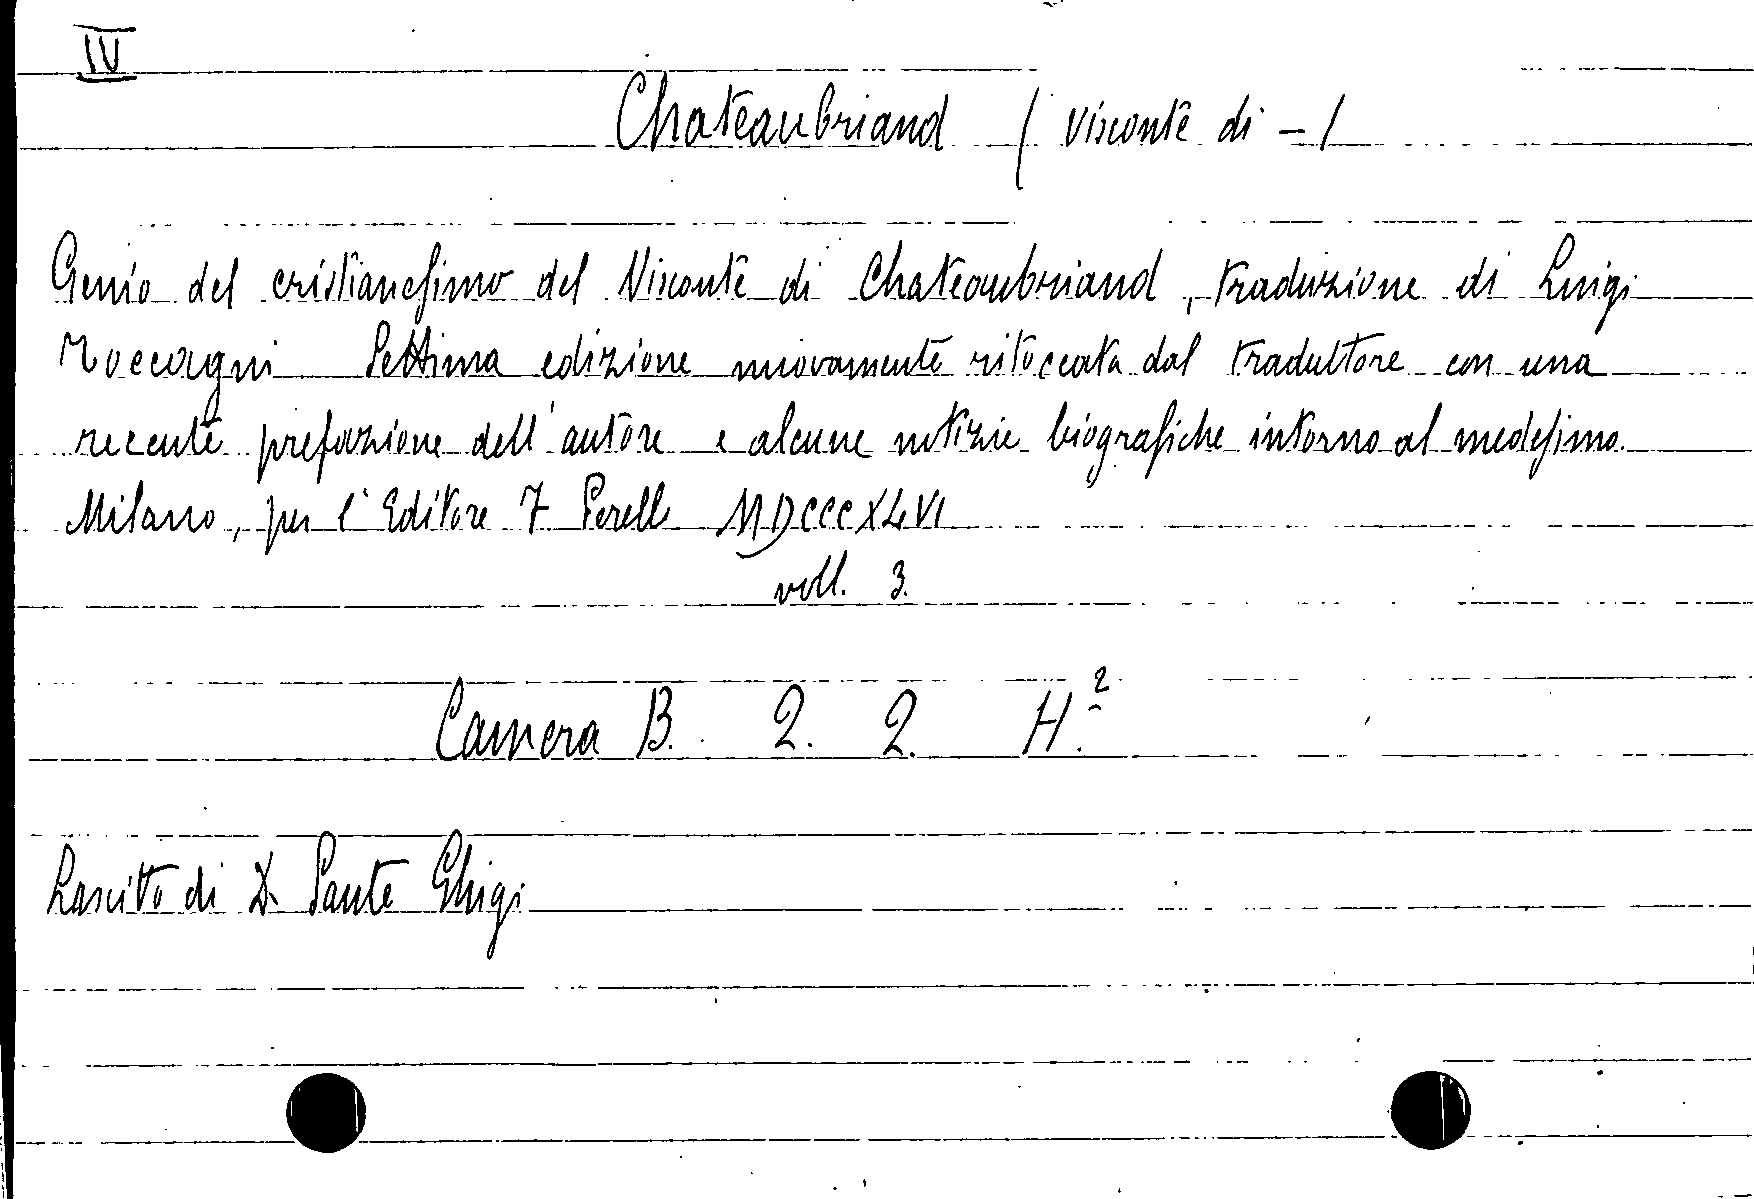 IV
Chateaubriand ( Visconte di - )
Genio del cristianesimo del Visconte di Chateaubriand, traduzione di Luigi
Toccagni Settima edizione nuovamente ritoccata dal traduttore con una
recente prefazione dell'autore e alcune notizie biografiche intorno al medesimo.
Milano, per l'Editore F Perelli MDCCCXLVI
voll. 3.
Camera B. 2. 2. H.2
Lascito di D. Sante Ghigi